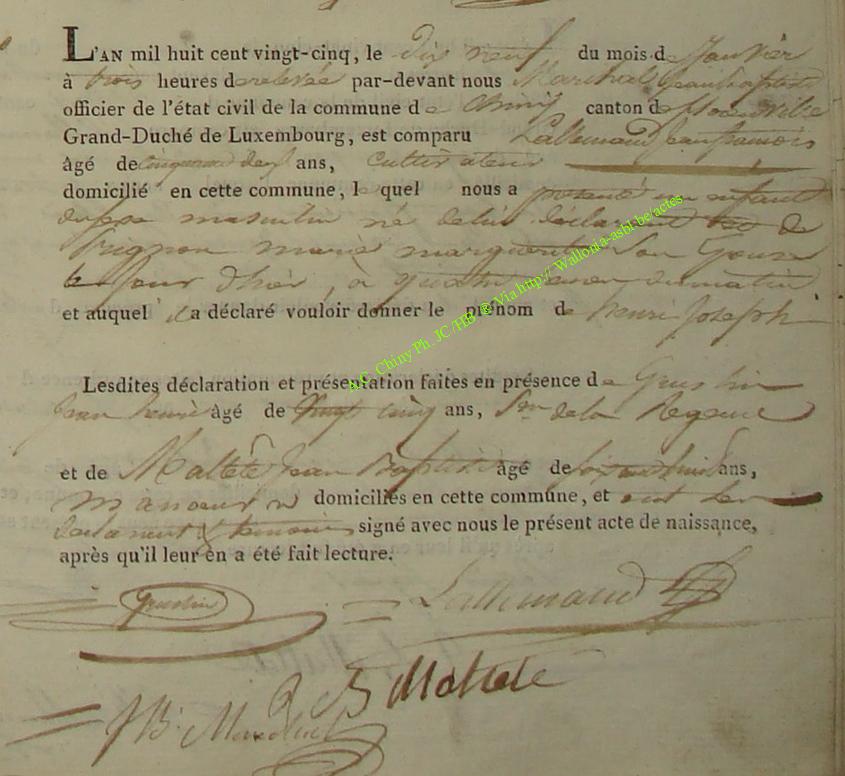 L'AN mil huit cent vingt-cinq, le dix neuf du mois de Janvier
à trois heures de relevée par-devant nous Marchal Jean baptiste
officier de l'état civil de la commune de Chiny canton de florenville
Grand-Duché de Luxembourg, est comparu Lallemand Jean françois
âgé de cinquante deux ans, cultivateur
domicilié en cette commune, lequel nous a présenté un enfant
du sexe masculin né de lui déclarant et de
Pignon marie marguerite son épouse
le jour d'hier, à quatre heures du matin
et auquel il a déclaré vouloir donner le prénom de henri Joseph
Lesdites déclaration et présentation faites en présence de Gruslin
Jean henri âgé de vingt cinq ans, de la Regence
et de Maltete Jean Baptiste âgé de ans,
manoeuvre domiciliés en cette commune, et ont les
déclarant & temoins signé avec nous le présent acte de naissance,
après qu'il leur en a été fait lecture.
Gruslin Lallemand
JB Maltete
JB. Marchal
a.C. Chiny Ph. JC /HB ® Via http:// Wallonia-asbl.be/actes